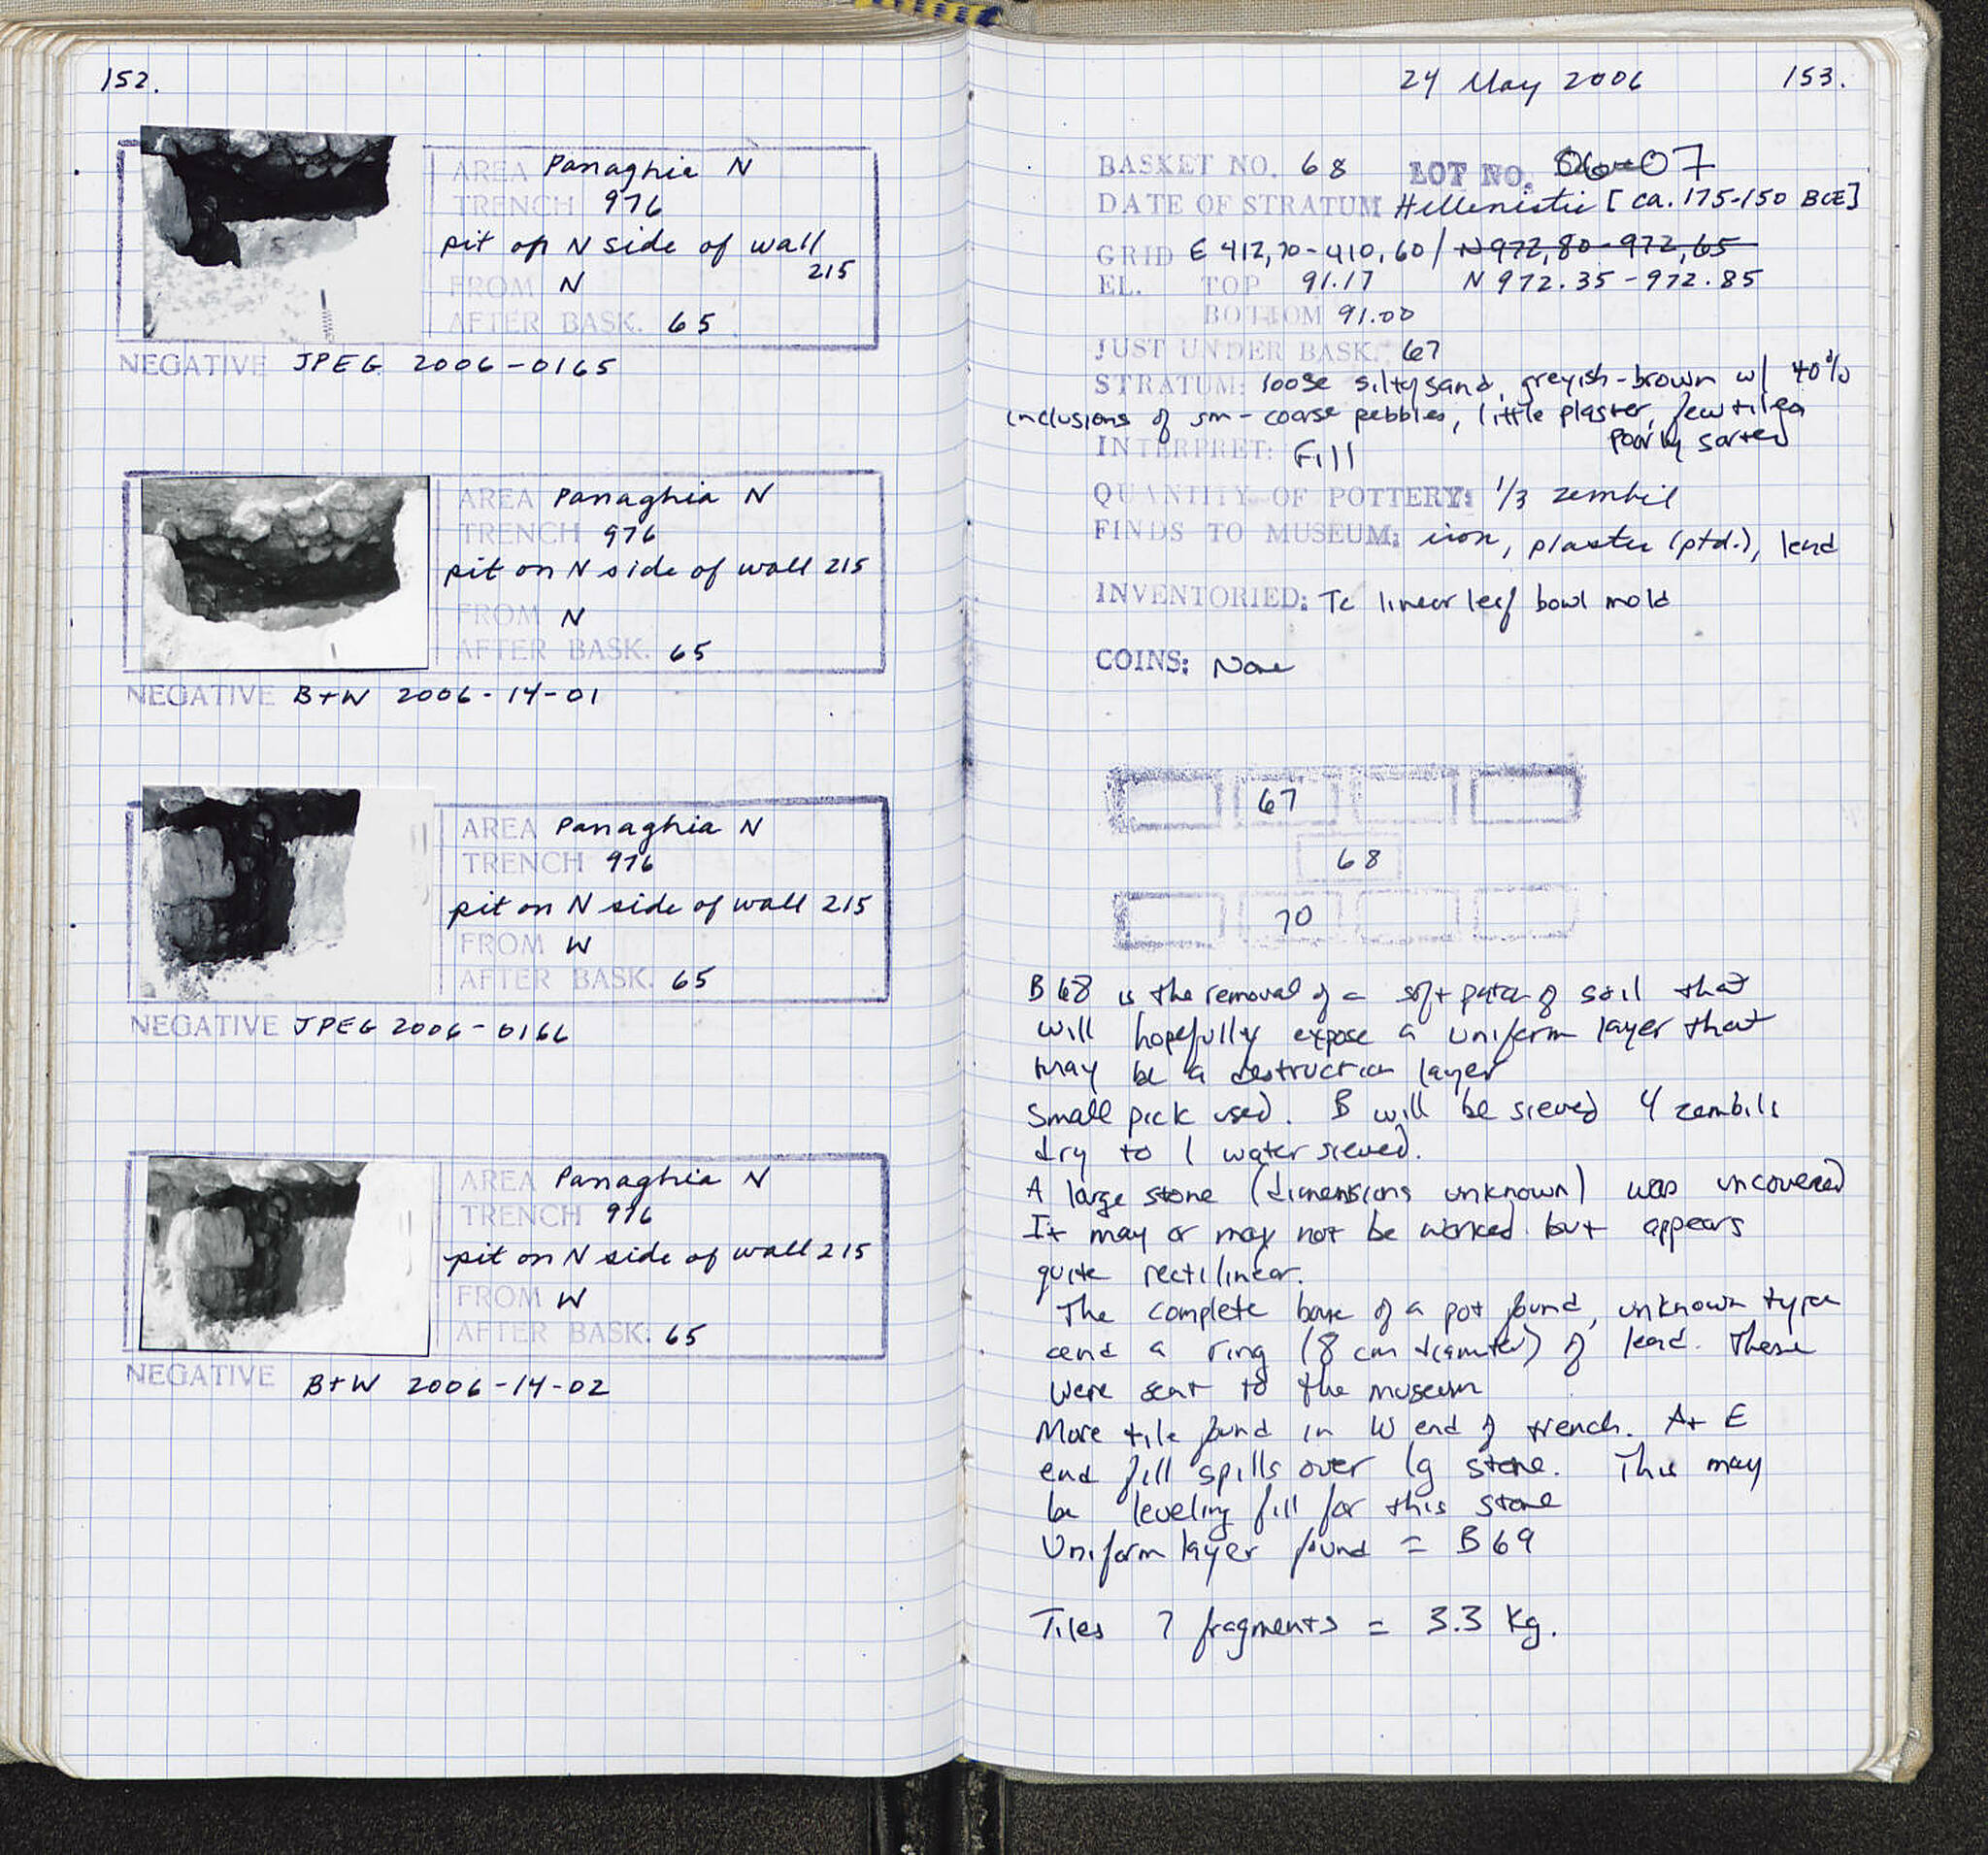 152.
AREA Panaghia N
TRENCH 976
pit on N side of wall
215
FROM N
AFTER BASK. 65
NEGATIVE JPEG 2006-0165
AREA Panaghia N
TRENCH 976
pit on N side of wall 215
FROM N
AFTER BASK. 65
NEGATIVE B+W 2006-14-01
AREA Panaghia N
TRENCH 976
pit on N side of wall 215
FROM W
AFTER BASK. 65
NEGATIVE JPEG 2006-0166
AREA Panaghia N
TRENCH 976
pit on N side of wall 215
FROM W
AFTER BASK. 65
NEGATIVE B+W 2006-14-02
24 May 2006 153.
BASKET NO. 68 LOT NO. 07
DATE OF STRATUM Hellenistic [ca. 175-150 BCE]
GRID E 412,70-410,60 / N 972,80-972,65
EL. TOP 91.17 N 972.35-972.85
BOTTOM 91.00
JUST UNDER BASK. 67
STRATUM: loose silty sand, greyish-brown w/ 40%
inclusions of sm-coarse pebbles, little plaster, few tiles
poorly sorted
INTERPRET: Fill
QUANTITY OF POTTERY: 1/3 zembil
FINDS TO MUSEUM: iron, plaster (ptd.), lead
INVENTORIED: Tc linear leaf bowl mold
COINS: None
67
68
70
B 68 is the removal of a soft patch of soil that
will hopefully expose a uniform layer that
may be a destruction layer
Small pick used. B will be sieved 4 zembils
dry to 1 water sieved.
A large stone (dimensions unknown) was uncovered
It may or may not be worked but appears
quite rectilinear.
The complete base of a pot found, unknown type
and a ring (8 cm diameter) of lead. These
were sent to the museum
More tile found in W end of trench. At E
end fill spills over lg stone. This may
be leveling fill for this stone
Uniform layer found = B 69
Tiles 7 fragments = 3.3 kg.